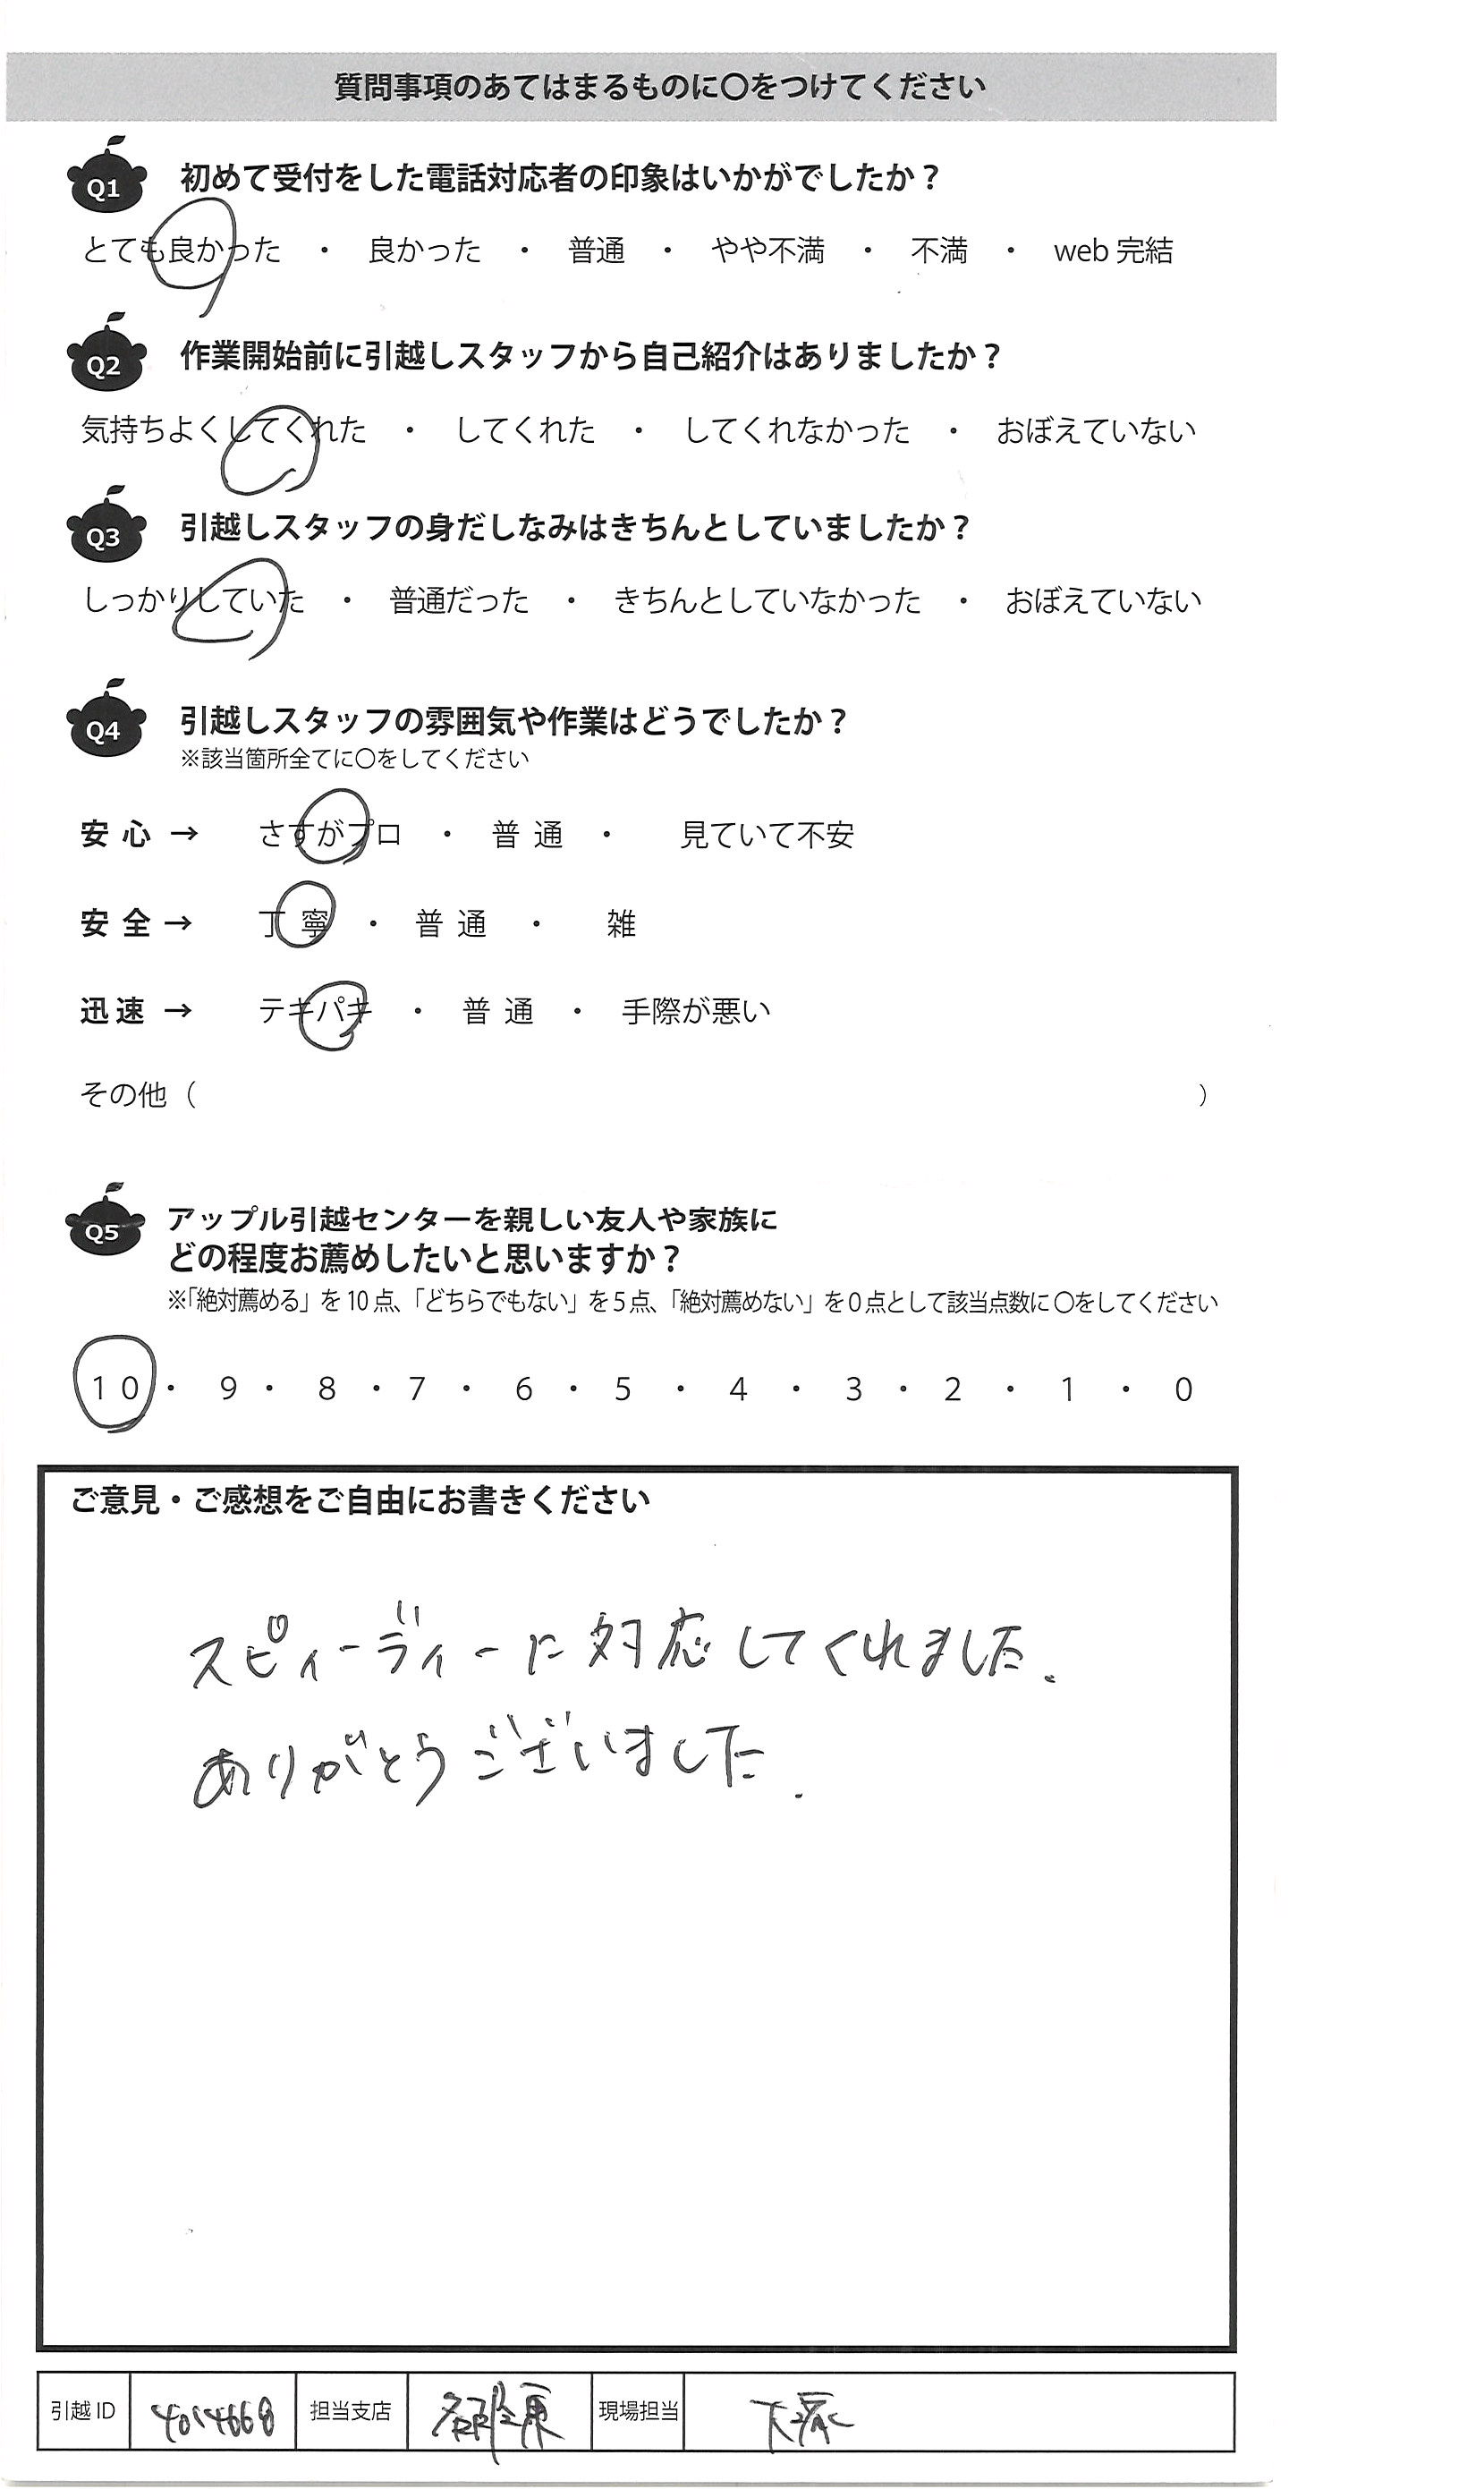 質問事項のあてはまるものに〇をつけてください
Q1 初めて受付をした電話対応者の印象はいかがでしたか？
とても良かった ・ 良かった ・ 普通 ・ やや不満 ・ 不満 ・ web 完結
Q2 作業開始前に引越しスタッフから自己紹介はありましたか？
気持ちよくしてくれた ・ してくれた ・ してくれなかった ・ おぼえていない
Q3 引越しスタッフの身だしなみはきちんとしていましたか？
しっかりしていた ・ 普通だった ・ きちんとしていなかった ・ おぼえていない
Q4 引越しスタッフの雰囲気や作業はどうでしたか？
※該当箇所全てに〇をしてください
安心 → さすがプロ ・ 普通 ・ 見ていて不安
安全 → 丁寧 ・ 普通 ・ 雑
迅速 → テキパキ ・ 普通 ・ 手際が悪い
その他（ ）
Q5 アップル引越センターを親しい友人や家族に
どの程度お薦めしたいと思いますか？
※「絶対薦める」を10点、「どちらでもない」を5点、「絶対薦めない」を0点として該当点数に〇をしてください
10 ・ 9 ・ 8 ・ 7 ・ 6 ・ 5 ・ 4 ・ 3 ・ 2 ・ 1 ・ 0
ご意見・ご感想をご自由にお書きください
スピィーディーに対応してくれました.
ありがとうございました.
引越ID 4014668 担当支店 現場担当 大塚